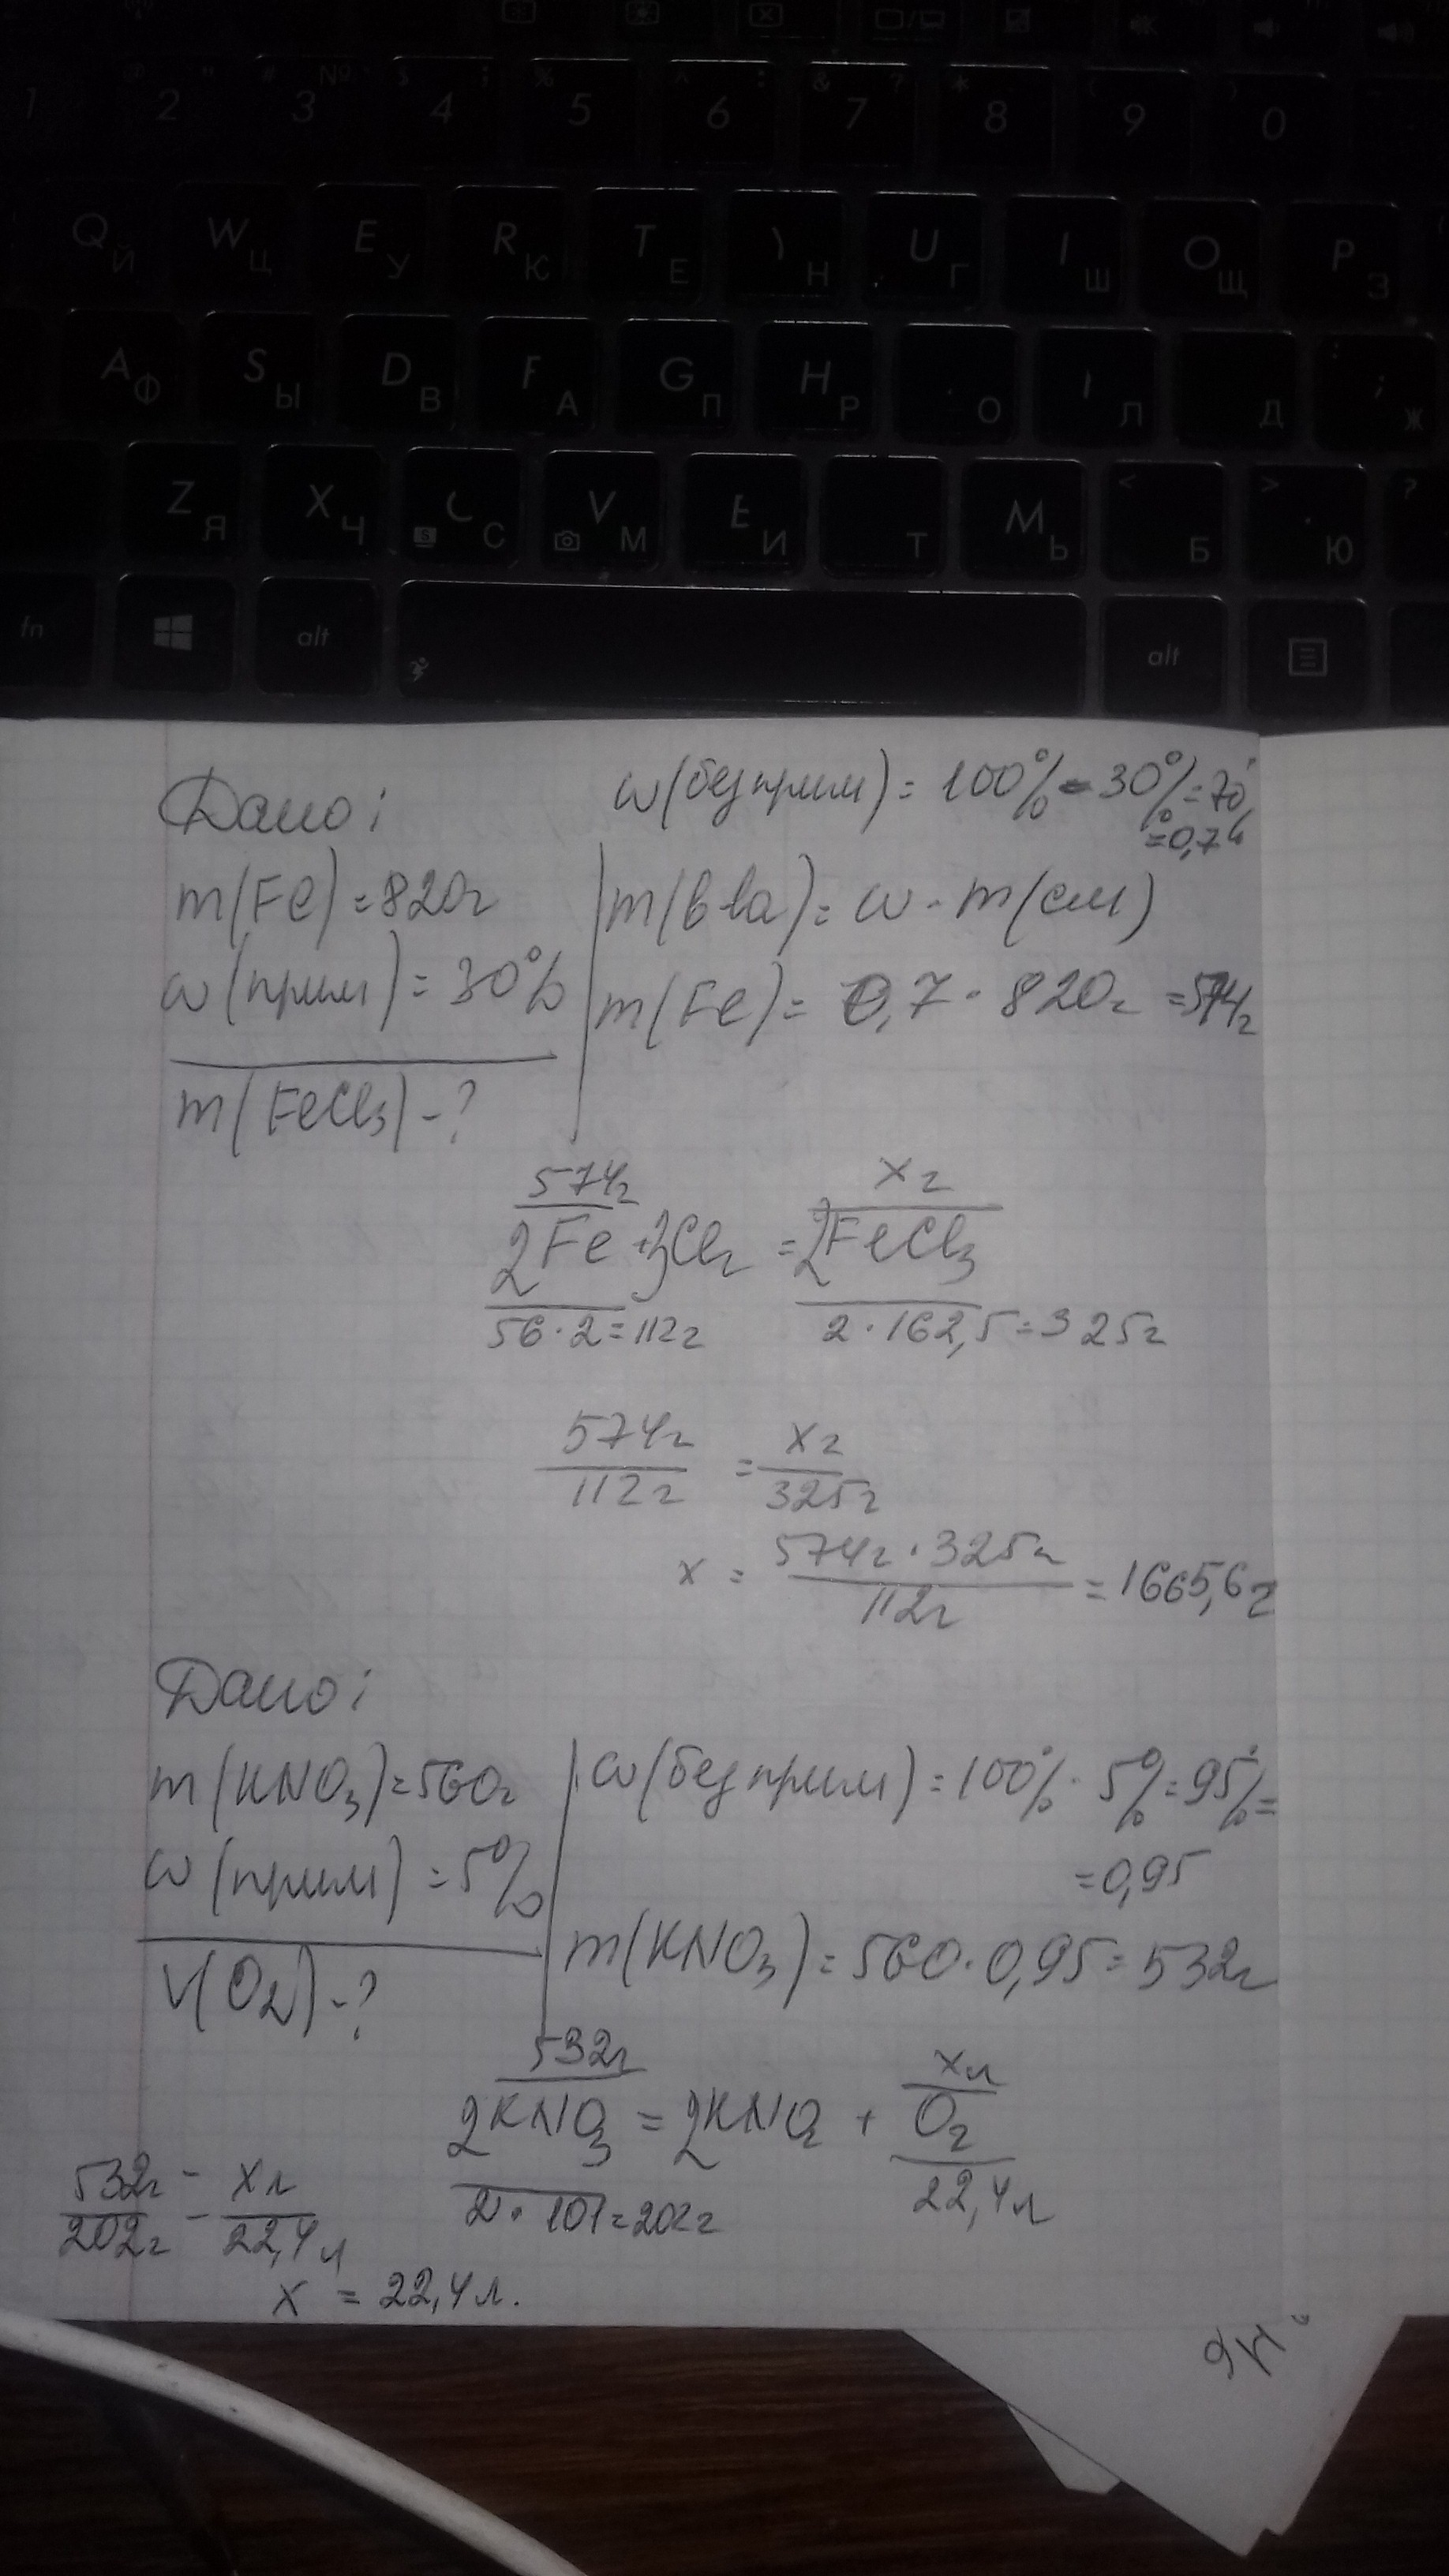 1 2 3 4 5 6 7 8 9 0
Q Й W Ц E У R К T Е Н U Г I Ш O Щ P З
A Ф S Ы D В F А G П H Р О Л Д ; Ж
Z Я X Ч С V М И Т M Ь < Б > . Ю ?
fn alt alt
Дано:
ω(без прим) = 100% - 30% = 70%
= 0,7
m(Fe) = 820г
m(в-ва) = ω · m(см)
ω(прим) = 30%
m(Fe) = 0,7 · 820г = 574г
m(FeCl₃) - ?
574г xг
2Fe + 3Cl₂ = 2FeCl₃
56 · 2 = 112г 2 · 162,5 = 325г
574г/112г = xг/325г
x = 574г · 325г/112г = 1665,6г
Дано:
m(KNO₃) = 560г
ω(без прим) = 100% - 5% = 95% =
= 0,95
ω(прим) = 5%
m(KNO₃) = 560 · 0,95 = 532г
V(O₂) - ?
532г xл
2KNO₃ = 2KNO₂ + O₂
2 · 101 = 202г 22,4л
532г/202г = xл/22,4л
x = 22,4л.